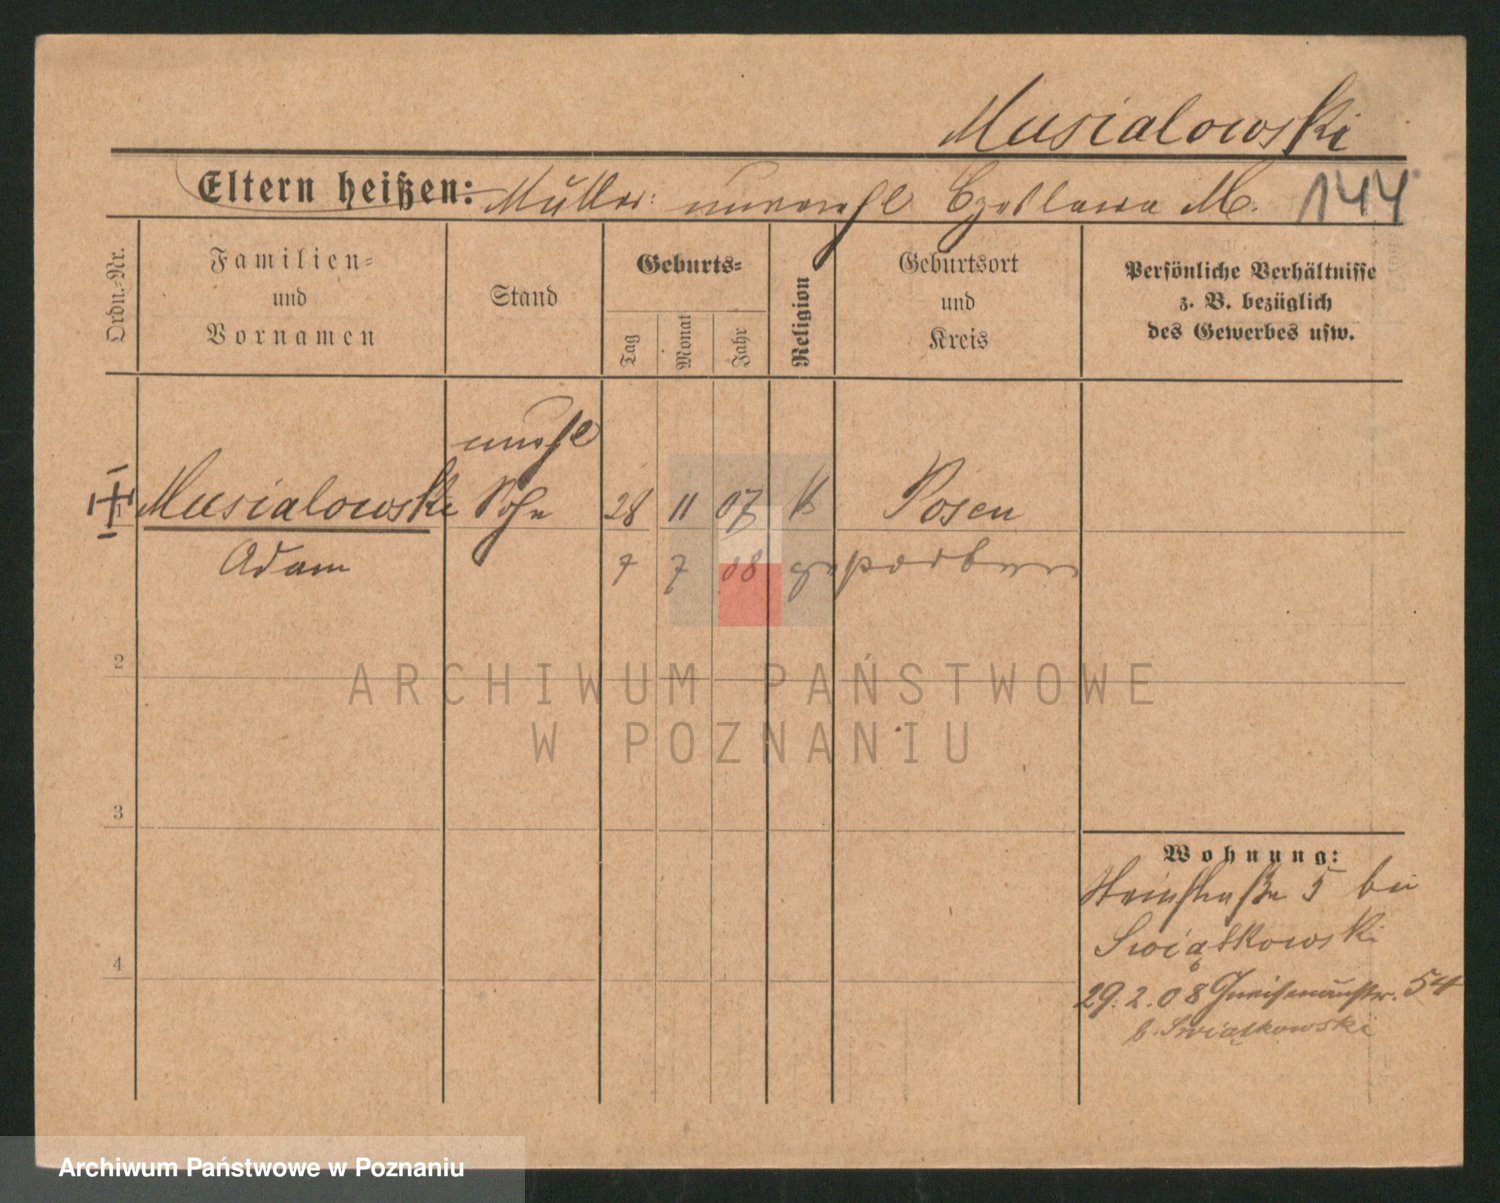 Musialowski
Eltern heißen: Mutter: unverehel Czeslawa M. 144
Ordn.-Nr.
Familien-
und
Vornamen
Stand
Geburts-
Tag
Monat
Jahr
Religion
Geburtsort
und
Kreis
Persönliche Verhältnisse
z. B. bezüglich
des Gewerbes usw.
unehl
1 Musialowski Sohn 28 11 07 K Posen
Adam 7 7 08 gestorben
2
ARCHIWUM PAŃSTWOWE
W POZNANIU
3
Wohnung:
Steinstraße 5 bei
Swiątkowski
4
29.2.08 Gneisenaustr. 54
b. Swiątkowski
Archiwum Państwowe w Poznaniu